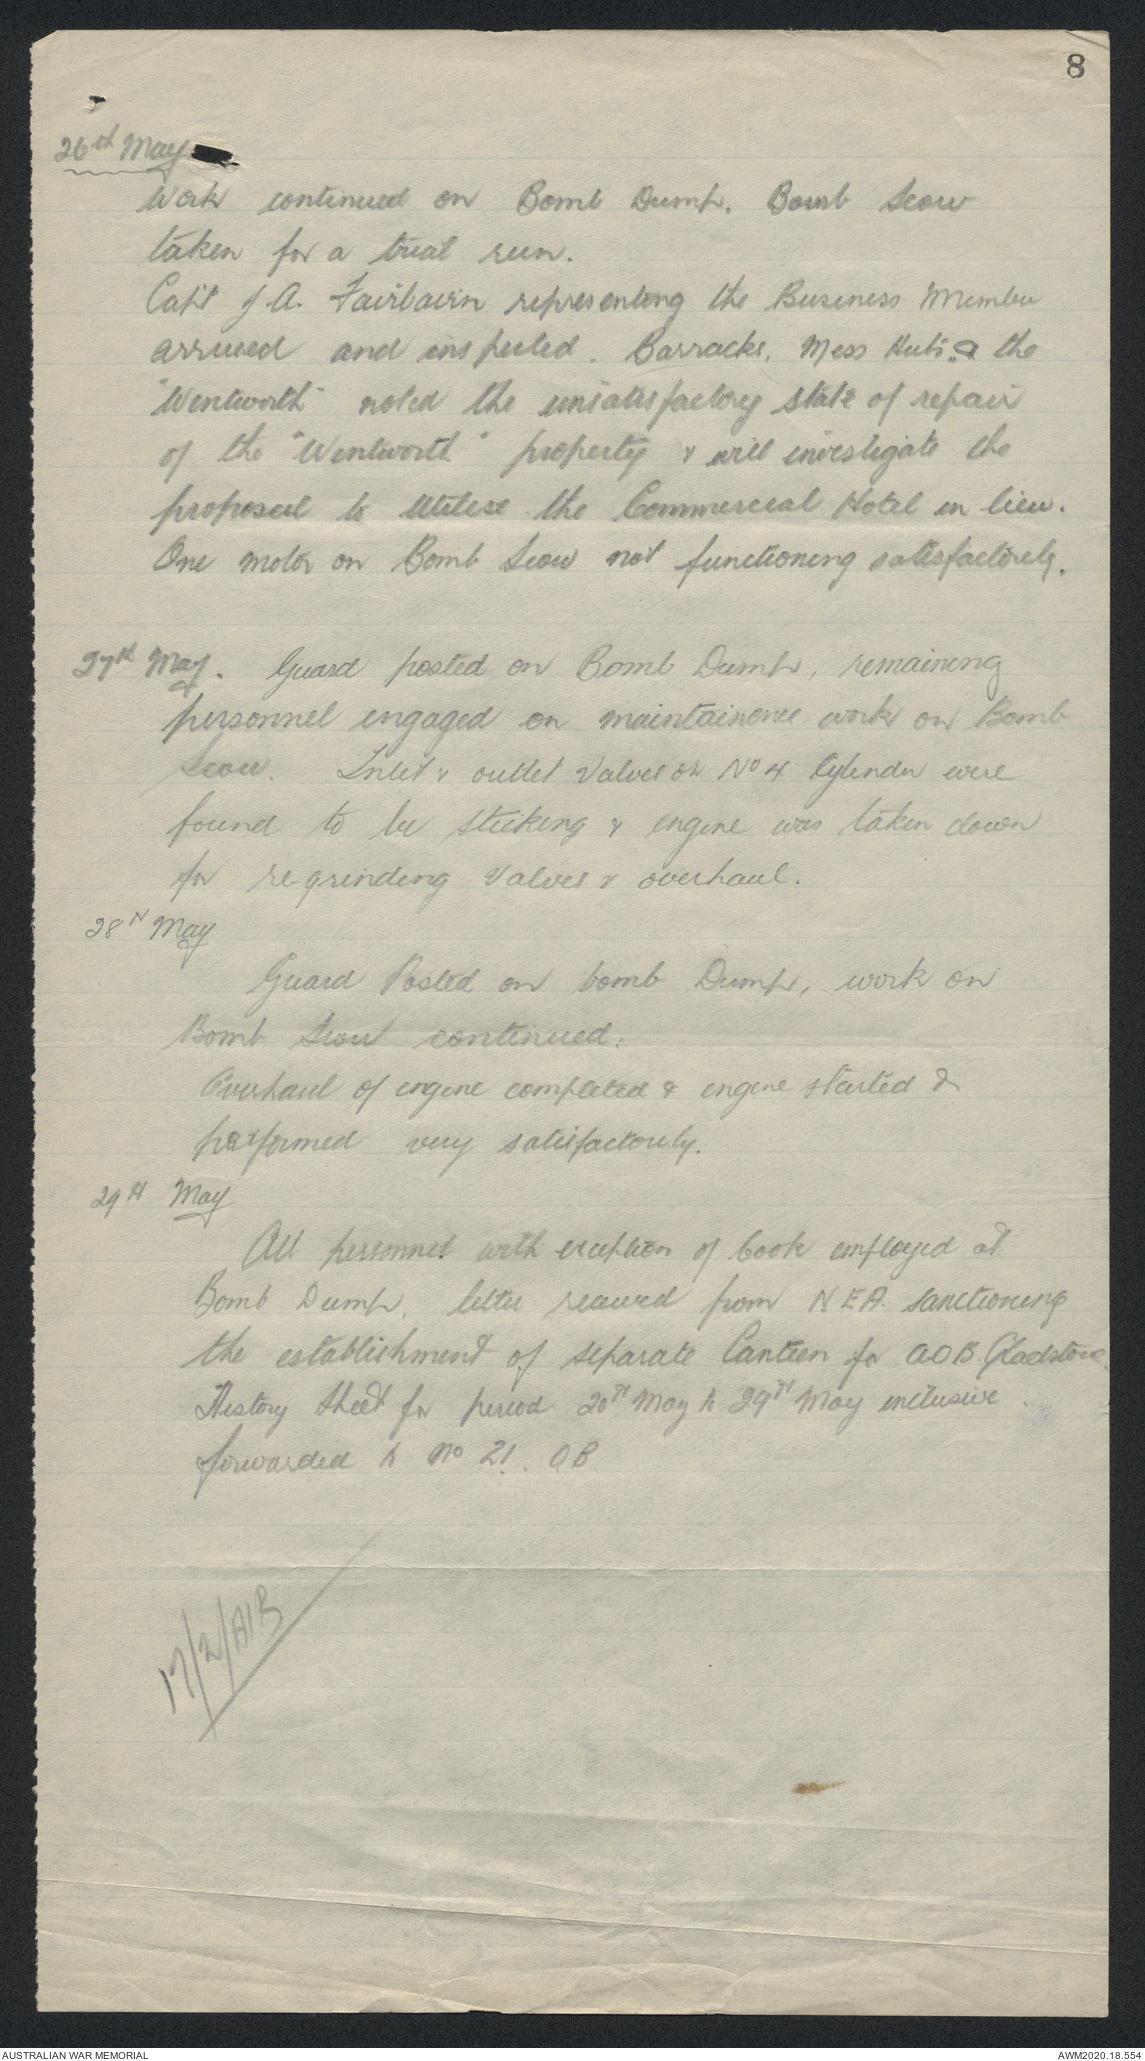 8
26th May
Work continued on Bomb Dump. Bomb Scow
taken for a trial run.
Capt J.A. Fairbairn representing the Business Member
arrived and inspected. Barracks, Mess Huts & the
"Wentworth" noted the unsatisfactory state of repair
of the "Wentworth" property & will investigate the
proposal to utilise the Commercial Hotel in lieu.
One motor on Bomb Scow not functioning satisfactorily.
27th May. Guard posted on Bomb Dump, remaining
personnel engaged on maintainence work on Bomb
Scow. Inlet & outlet valves on No 4 Cylinder were
found to be sticking & engine was taken down
for regrinding valves & overhaul.
28th May
Guard Posted on bomb Dump, work on
Bomb Scow continued.
Overhaul of engine completed & engine started &
performed very satisfactorily.
29th May
All personnel with exception of Cook employed at
Bomb Dump. letter received from N.E.A. sanctioning
the establishment of separate Canteen for AOB. Gladstone.
History Sheet for period 20th May to 29th May inclusive
forwarded to No 21. OB
17/2/AIR
AUSTRALIAN WAR MEMORIAL
AWM2020.18.554